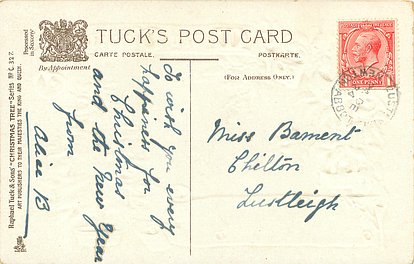 TUCK'S POST CARD
CARTE POSTALE.
POSTKARTE.
By Appointment
(FOR ADDRESS ONLY.)
Processed
in Saxony
Raphael Tuck & Sons' "CHRISTMAS TREE" Series
ART PUBLISHERS TO THEIR MAJESTIES THE KING AND QUEEN.
To wish you every
happiness for
Christmas
and the New Year
from
Alice B
Miss Bament
Chilton
Lustleigh
ONE PENNY